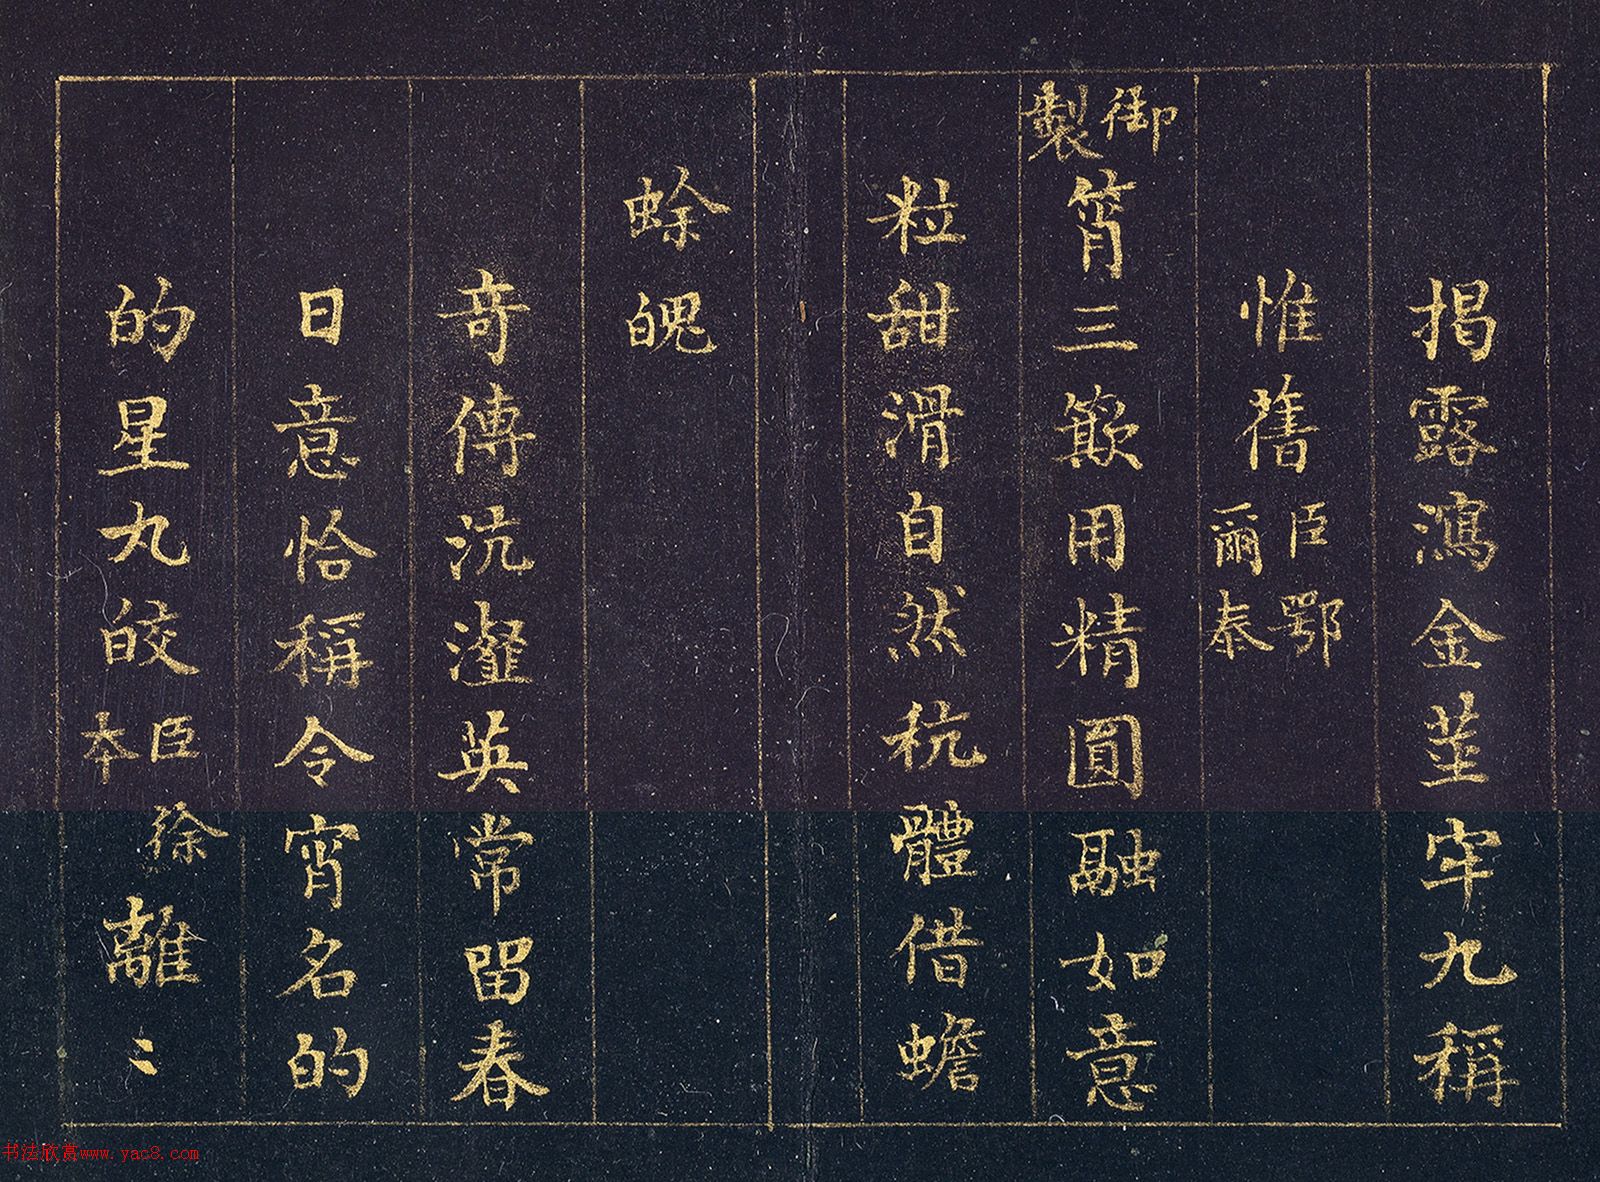 揭露鴻金莖牢九稱
惟舊臣鄂爾泰
御製筲三簸用精圓融如意
粒甜滑自然秔體借蟾
蜍魄
奇傳沆瀣英常留春
日意恰稱令宵名的
的星九皎臣徐本離〻
书法欣赏www.yac8.com